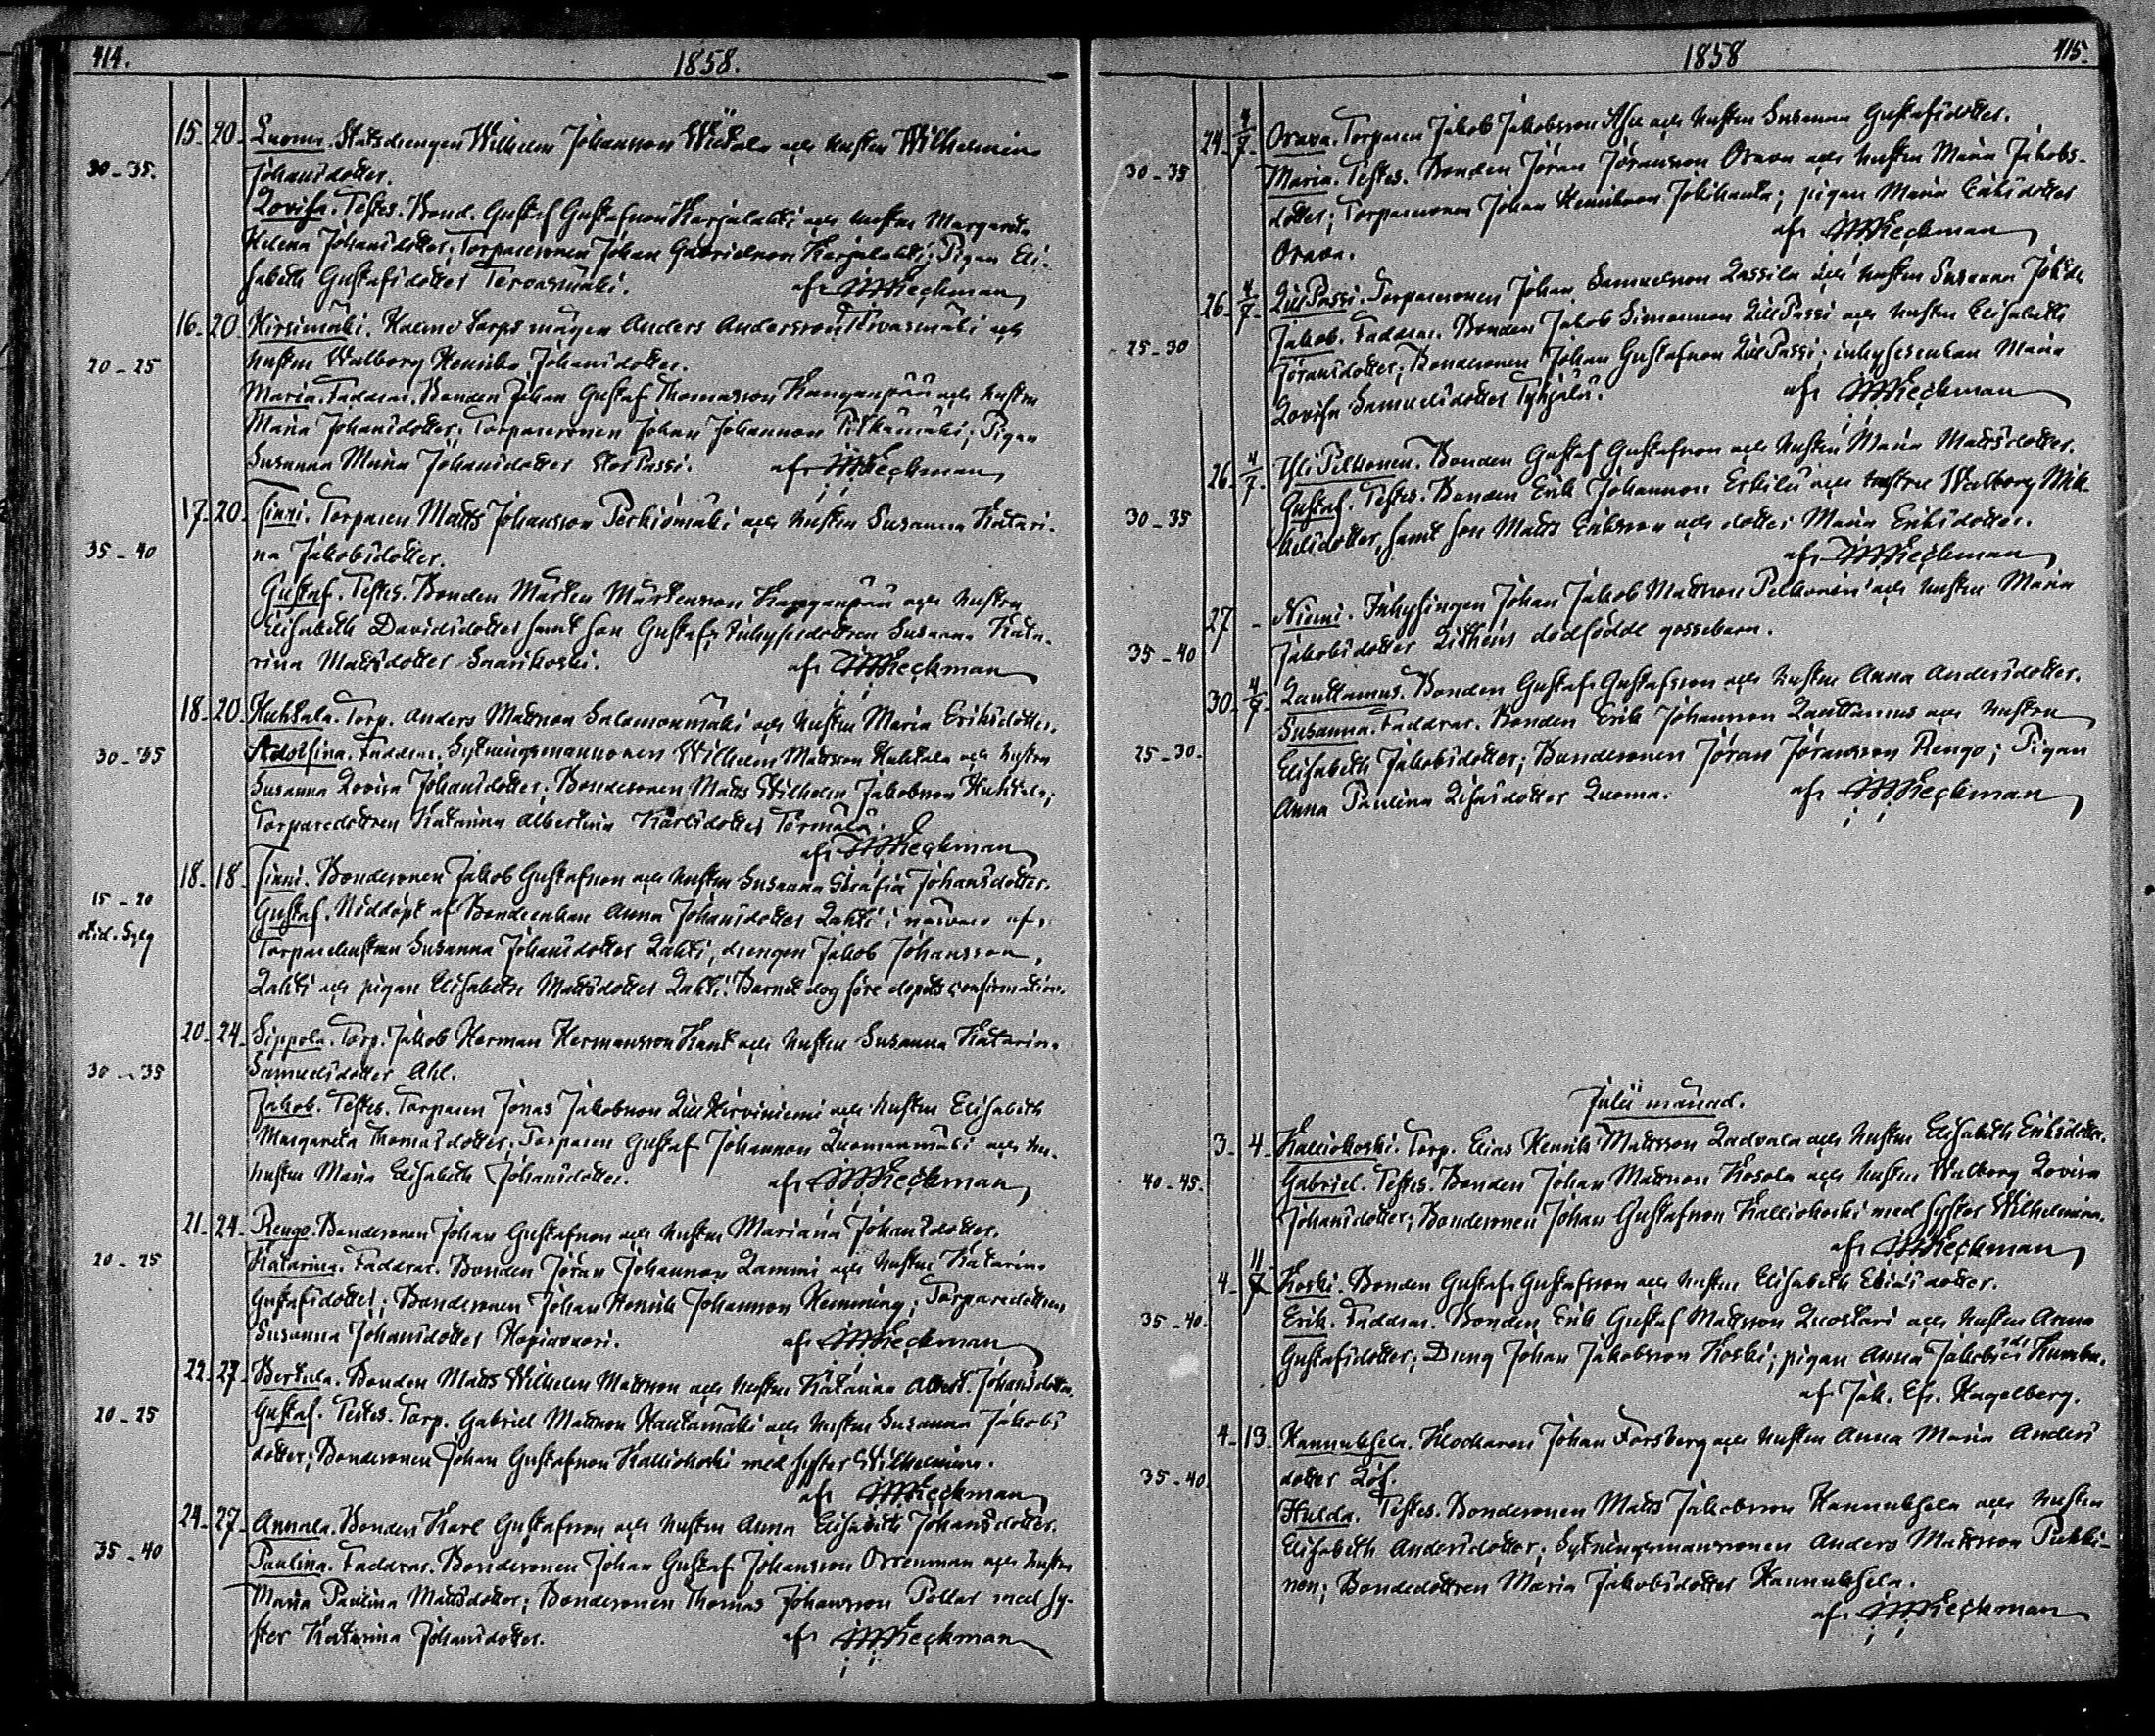 414.
1858.
15. 20. Luoma. Statsdrengen Wilhelm Johansson Wiitala och hustru Wilhelmina
30-35. Johansdotter.
Lovisa. Testes. Bond. Gustaf Gustafsson Karjalahti och hustru Margareta
Helena Johansdotter; Torparesonen Johan Gabrielsson Karjalahti; Pigan Eli-
sabeth Gustafsdotter Tervasmäki. af MWeckman
16. 20 Hirsimäki. Torpsmågen Anders Andersson Tervasmäki och
20-25 hustru Walborg Henrika Johansdotter.
Maria. Faddrar. Bonden Johan Gustaf Thomasson Kangaspää och hustru
Maria Johansdotter; Torparesonen Johan Johansson Pitkämäki; Pigan
Susanna Maria Johansdotter Stor Passi. af MWeckman
17. 20. Finni. Torparen Matts Johansson Perkiömäki och hustru Susanna Katari-
35-40 na Jakobsdotter.
Gustaf. Testes. Bonden Mårten Mårtensson Kangaspää och hustru
Elisabeth Davidsdotter samt son Gustaf; Inhysesdottren Susanna Kata-
rina Mattsdotter Saarikoski. af MWeckman
18. 20. Huhtala. Torp. Anders Mattsson Salomonmäki och hustru Maria Eriksdotter.
30-35 Adolfina. Faddrar. Sytningsmannsonen Wilhelm Mattsson Huhtala och hustru
Susanna Lovisa Johansdotter; Bondesonen Matts Wilhelm Jakobsson Huhtala;
Torparedottren Katarina Albertina Karlsdotter Törmälä.
af MWeckman
18. 18. Finni. Bondesonen Jakob Gustafsson och hustru Susanna Serafia Johansdotter.
15-20 Gustaf. Nöddöpt af Bondeenkan Anna Johansdotter Lahti i närvaro af
Torparehustrun Susanna Johansdotter Lahti, drengen Jakob Johansson
Lahti och pigan Elisabeth Mattsdotter Lahti. Barnet dog före dopets confirmation.
20. 24. Sippola. Torp. Jakob Herman Hermansson Kant och hustru Susanna Katarina
30-35 Samuelsdotter Ahl.
Jakob. Testes. Torparen Jonas Jakobsson Lill Hirviniemi och hustru Elisabeth
Margareta Thomasdotter; Torparen Gustaf Johansson Luomanmäki och hu-
hustru Maria Elisabeth Johansdotter. af MWeckman
21. 24. Rengo. Bondesonen Johan Gustafsson och hustru Mariana Johansdotter.
20-25 Katarina. Faddrar. Bonden Jöran Johansson Lammi och hustru Katarina
Gustafsdotter; Bondesonen Johan Henrik Johansson Hemming; Torparedottren
Susanna Johansdotter Hapiavuori. af MWeckman
22. 27. Bertula. Bonden Matts Wilhelm Mattsson och hustru Katarina Albert. Johansdotter.
20-25 Gustaf. Testes. Torp. Gabriel Mattsson Hautamäki och hustru Susanna Jakobs
dotter; Bondesonen Johan Gustafsson Kalliokoski med syster Wilhelmina.
af MWeckman
24. 27. Annala. Bonden Karl Gustafsson och hustru Anna Elisabeth Johansdotter.
35-40 Paulina. Faddrar. Bondesonen Johan Gustaf Johansson Orrenmaa och hustru
Maria Paulina Mattsdotter; Bondesonen Thomas Johansson Pollar med sy-
ster Katarina Johansdotter. af MWeckman
1858
415.
24. 4/7. Orava. Torparen Jakob Jakobsson och hustru Susanna Gustafsdotter.
30-35 Maria. Testes. Bonden Jöran Jöransson Orava och hustru Maria Jakobs-
dotter; Torparesonen Johan Henriksson; pigan Maria Eriksdotter
Orava. af MWeckman
26. 4/7. Lill Passi. Torparesonen Johan Samuelsson Lassila och hustru Susanna Joh:dr
25-30 Jakob. Faddrar. Bonden Jakob Simonsson Lill Passi och hustru Elisabeth
Jöransdotter; Bondesonen Johan Gustafsson Lill Passi; inhysesenkan Maria
Lovisa Samuelsdotter Tyhjälä. af MWeckman
26. 4/7. Yli Pelkonen. Bonden Gustaf Gustafsson och hustru Maria Mattsdotter.
30-35 Gustaf. Testes. Bonden Erik Johansson Erkilä och hustru Walborg Mik-
kelsdotter, samt son Matts Eriksson och dotter Maria Eriksdotter.
af MWeckman
27 - Niemi. Inhysingen Johan Jakob Mattsson Pelkonen och hustru Maria
35-40 Jakobsdotter Lithéns dödfödde gossebarn.
30. 4/7. Lauttamus. Bonden Gustaf Gustafsson och hustru Anna Andersdotter.
25-30. Susanna. Faddrar. Bonden Erik Johansson Lauttamus och hustru
Elisabeth Jakobsdotter; Bondesonen Jöran Jöransson Rengo; Pigan
Anna Paulina Elisasdotter Luoma. af MWeckman
Julii månad.
3. 4. Kalliokoski. Torp. Elias Henrik Mattsson Ladvala och hustru Elisabeth Eriksdotter.
40-45. Gabriel. Testes. Bonden Johan Mattsson Kosola och hustru Walborg Lovisa
Johansdotter; Bondesonen Johan Gustafsson Kalliokoski med syster Wilhelmina.
af MWeckman
4. 11/7 Koski. Bonden Gustaf Gustafsson och hustru Elisabeth Eliasdotter.
35-40. Erik. Faddrar. Bonden Erik Gustaf Mattsson Luostari och hustru Anna
Gustafsdotter; Dreng Johan Jakobsson Koski; pigan Anna Jakobsdr
af Joh. Ef. Hagelberg.
4. 13. Kannuksela. Klockaren Johan Forsberg och hustru Anna Maria Anders
35-40. dotter Löf.
Hulda. Testes. Bondesonen Matts Jakobsson Kannuksela och hustru
Elisabeth Andersdotter; Sytningsmannsonen Anders Mattsson Pukki-
nen; Bondedottren Maria Jakobsdotter Kannuksela.
af MWeckman